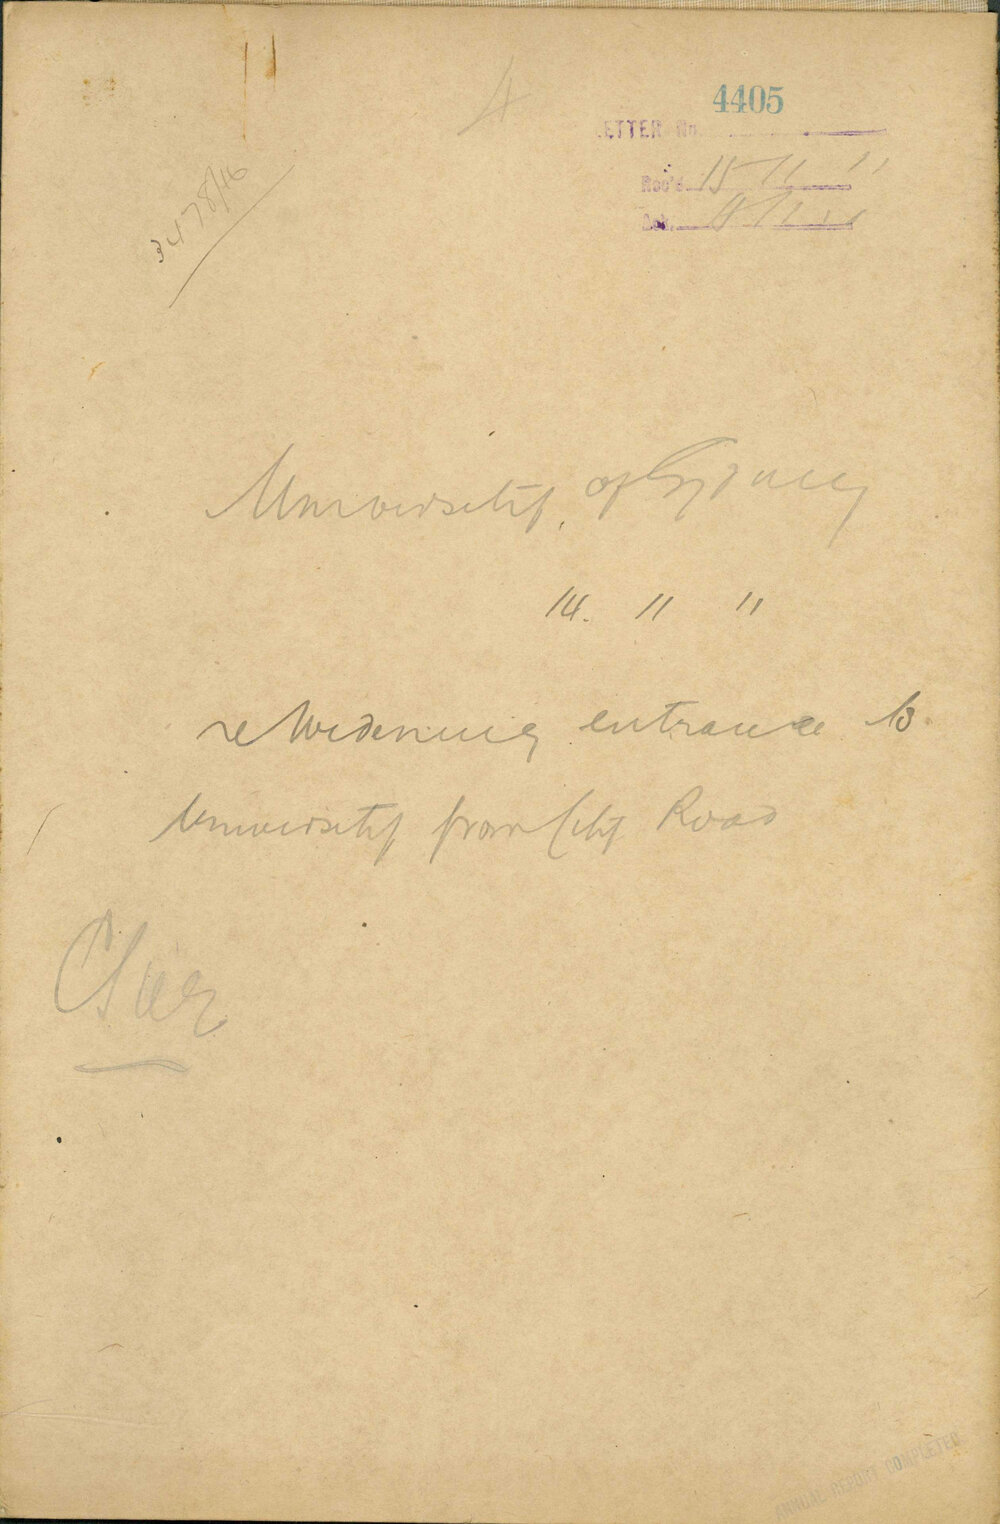 4
4405
LETTER No.
Rec'd 15 11 11
3478/16
University of Sydney
14. 11 11
re Widening entrance to
University from City Road
ANNUAL REPORT COMPLETED